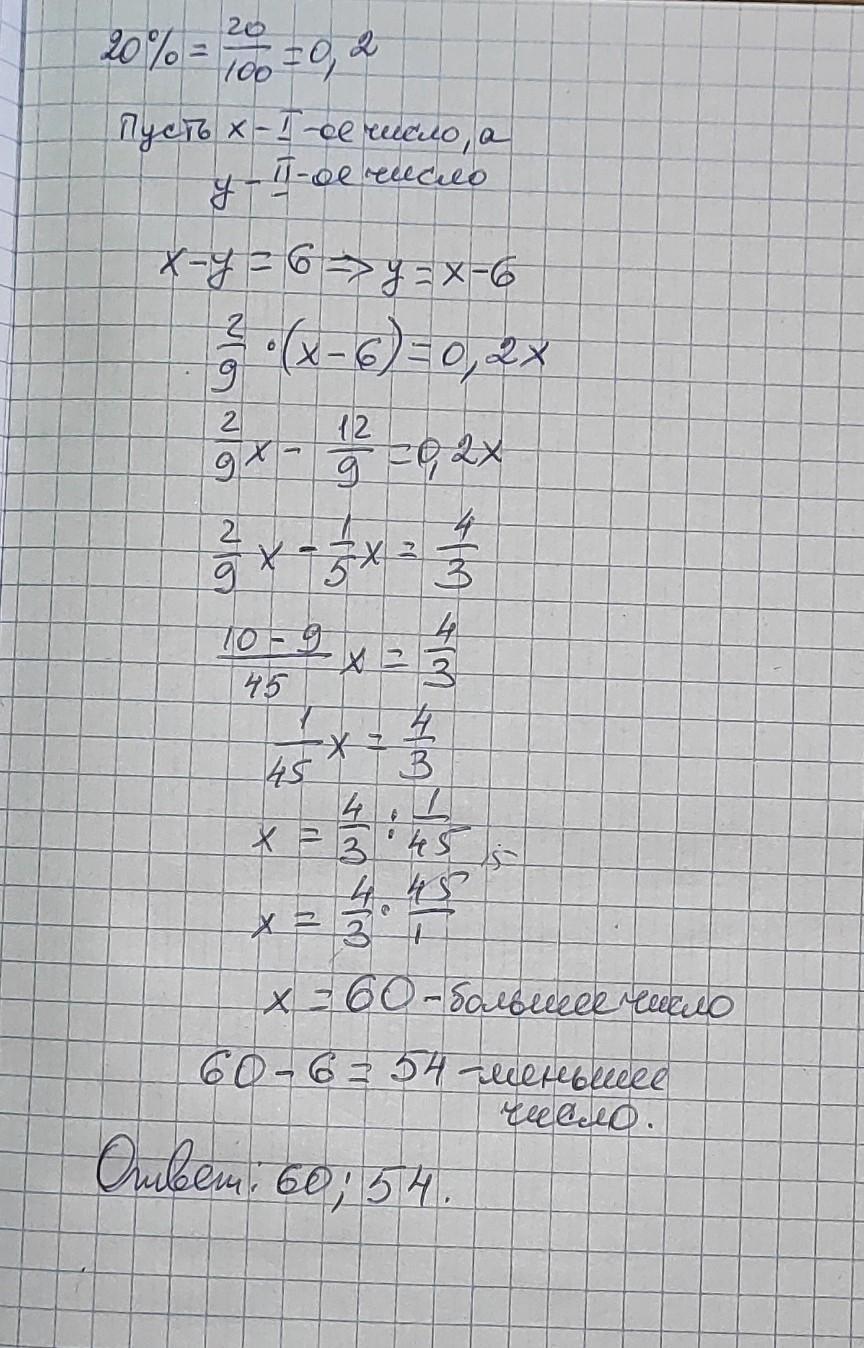 20% = 20/100 = 0,2
Пусть x - I - ое число, а
y - II - ое число
x - y = 6 => y = x - 6
2/9 · (x - 6) = 0,2x
2/9 x - 12/9 = 0,2x
2/9 x - 1/5 x = 4/3
10 - 9/45 x = 4/3
1/45 x = 4/3
x = 4/3 : 1/45
15
x = 4/3 · 45/1
x = 60 - большее число
60 - 6 = 54 - меньшее
число.
Ответ: 60; 54.